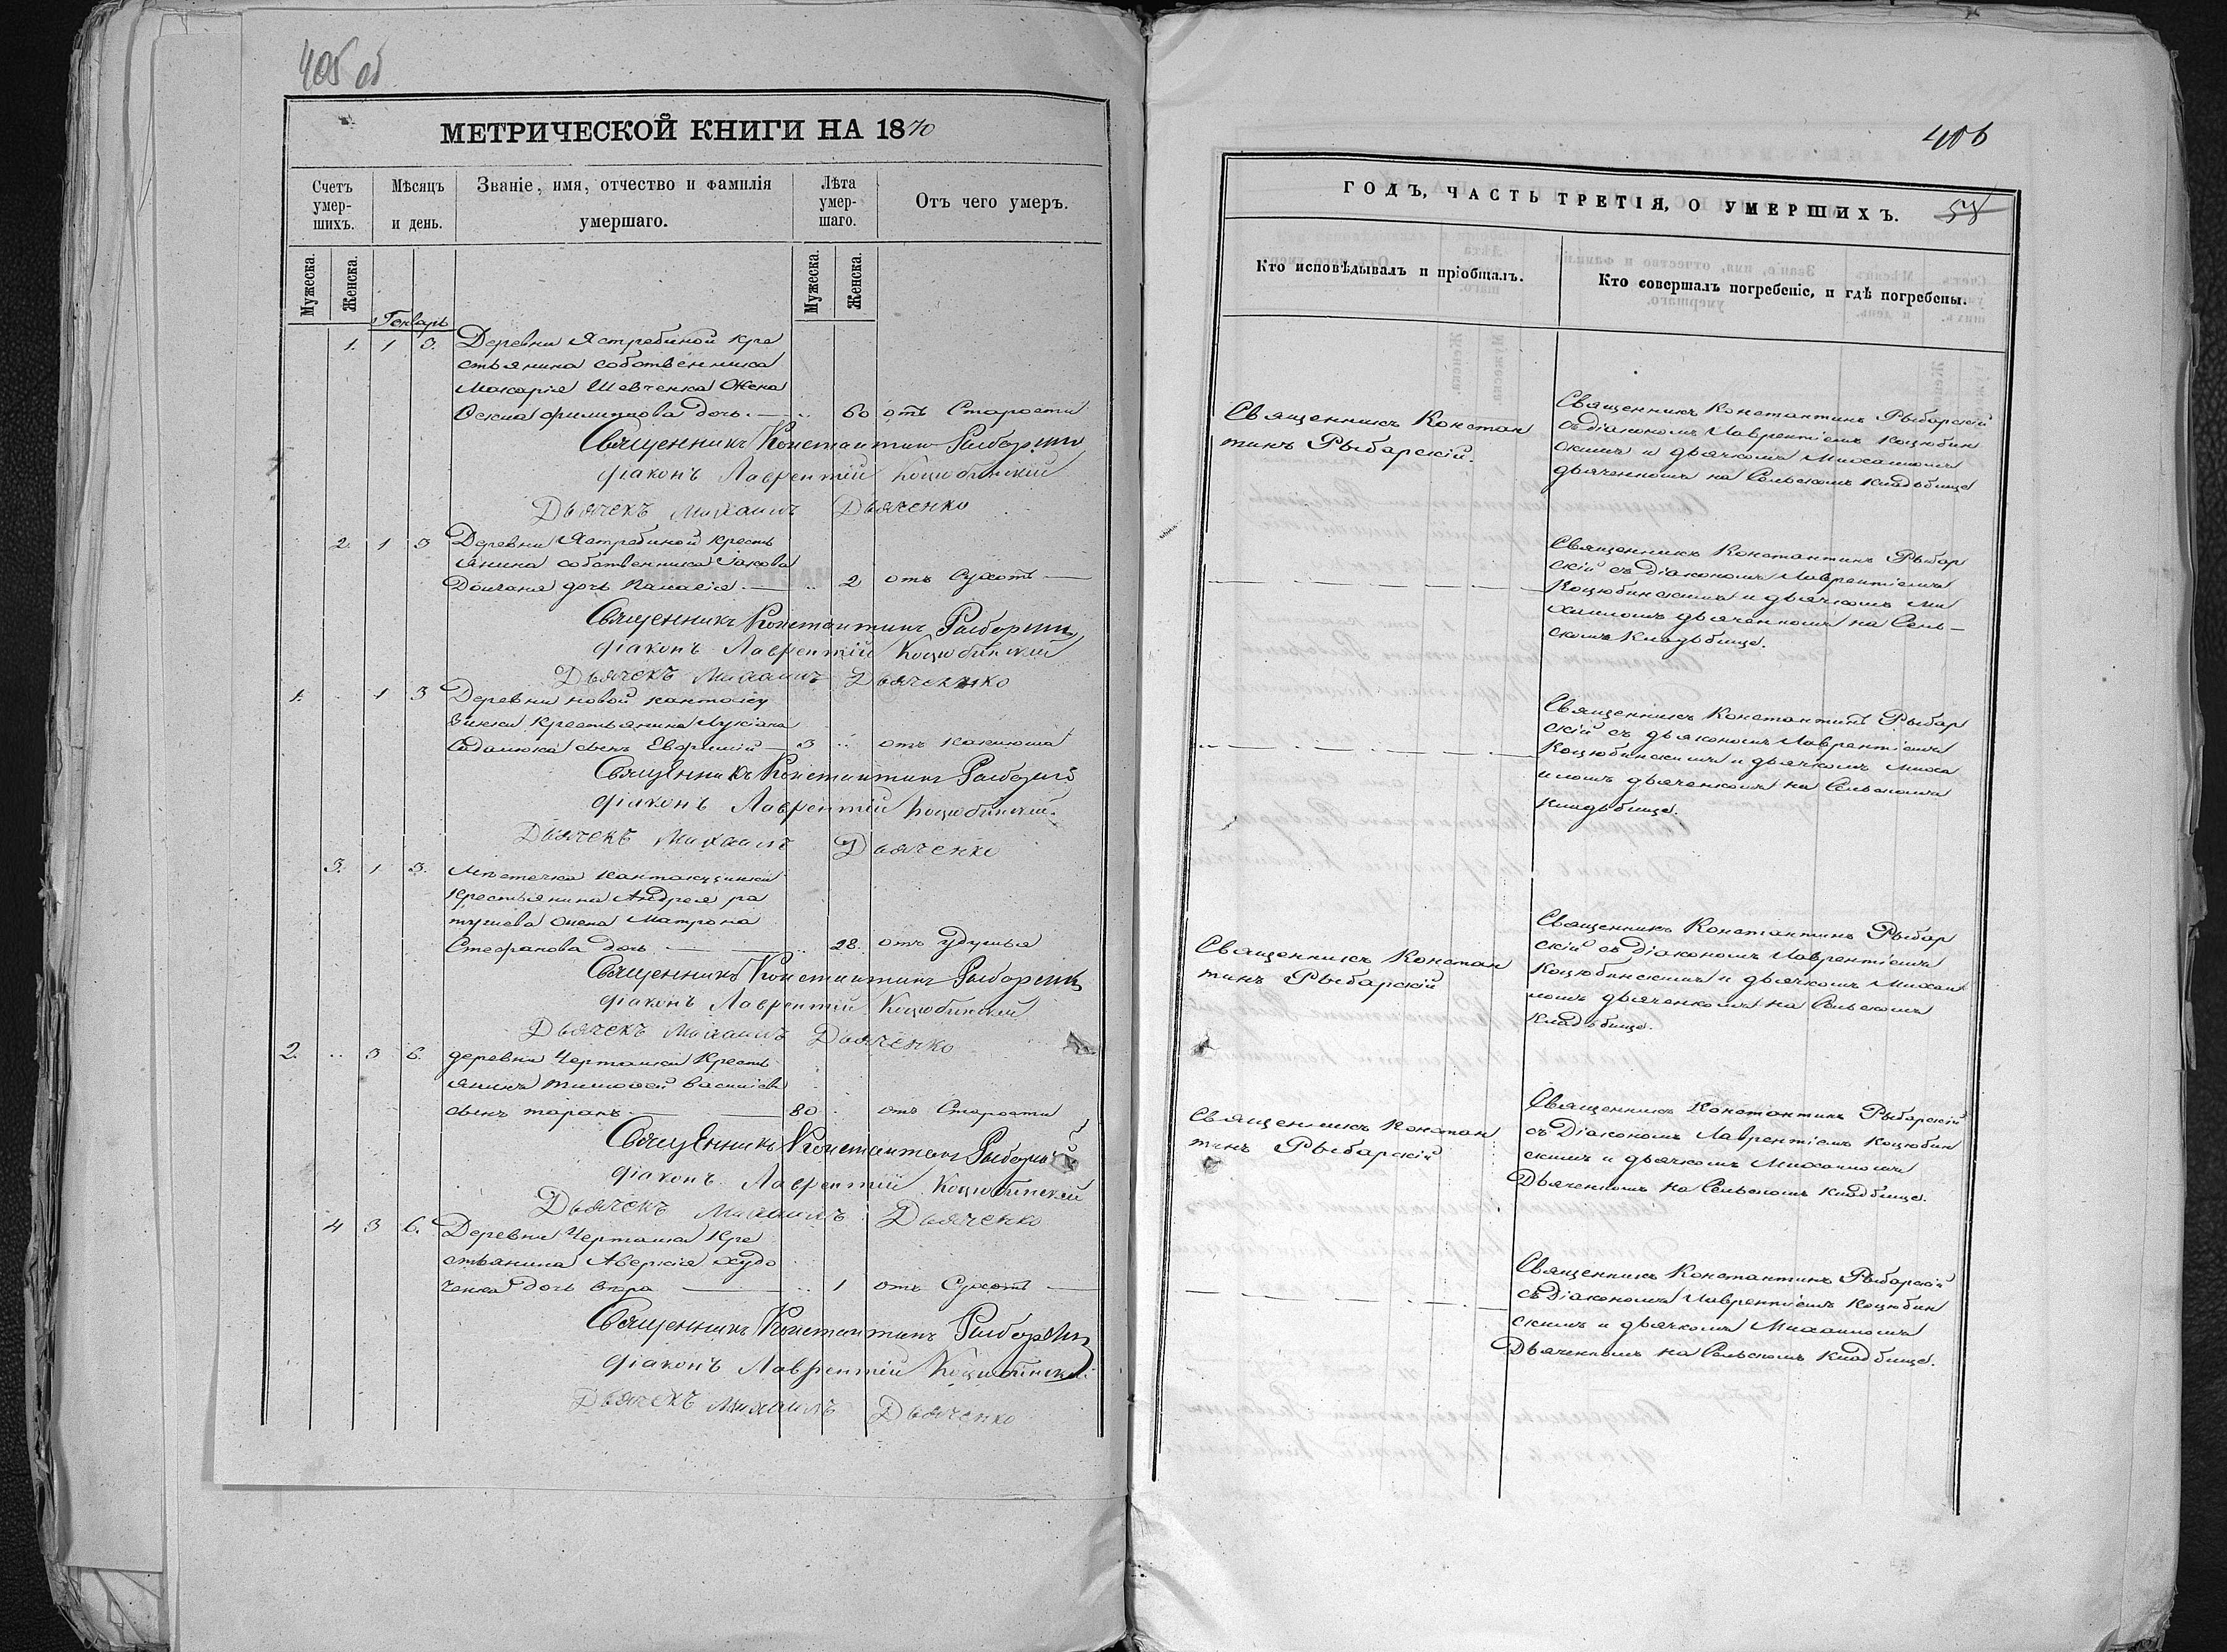 405 об
МЕТРИЧЕСКОЙ КНИГИ НА 1870
Счетъ умер-шихъ.
Мѣсяцъ и день.
Званіе, имя, отчество и фамилія умершаго.
Лѣта умер-шаго.
Отъ чего умеръ.
Мужеска.
Женска.
Мужеска.
Женска.
Генварь
1. 1 3. Деревни Ястребиной кре
стьянина собственника
Макарія Шевченка жена
Филиппова дочь. — .. 60 отъ Старости
Священникъ Константинъ Рыбарскій
Діаконъ Лаврентій Коцюбинскій
Дьячекъ Михаилъ Дьяченко
2. 1 3 Деревни Ястребиной кресть
янина собственника Іакова
дочь — .. 2 отъ Сухотъ —
Священникъ Константинъ Рыбарскій
Діаконъ Лаврентій Коцюбинскій
Дьячекъ Михаилъ Дьяченко
1. .. 1 3 Деревни новой кантаку
зинки крестьянина Лукіана
сынъ — 3 .. отъ коклюша
Священникъ Константинъ Рыбарскій
Діаконъ Лаврентій Коцюбинскій
Дьячекъ Михаилъ Дьяченко
3. 1 3. Мѣстечка Кантакузинки
Крестьянина Андрея ра
жена Матрона
Стефанова дочь — .. 28. отъ удушья
Священникъ Константинъ Рыбарскій
Діаконъ Лаврентій Коцюбинскій
Дьячекъ Михаилъ Дьяченко
2. .. 3 6. деревни Черташи Кресть
янинъ Тимофей Василіевъ
сынъ таранъ — 80 . отъ Старости
Священникъ Константинъ Рыбарскій
Діаконъ Лаврентій Коцюбинскій
Дьячекъ Михаилъ Дьяченко
4 3 6. Деревни Черташи Кре
стьянина Аверкія худо
дочь вѣра — .. 1 отъ Сухотъ —
Священникъ Константинъ Рыбарскій
Діаконъ Лаврентій Коцюбинскій
Дьячекъ Михаилъ Дьяченко
406
ГОДЪ, ЧАСТЬ ТРЕТІЯ, О УМЕРШИХЪ.
58
Кто исповѣдывалъ и пріобщалъ.
Кто совершалъ погребеніе, и гдѣ погребены.
Священникъ Констан
тинъ Рыбарскій.
Священникъ Константинъ Рыбарскій
съ діакономъ Лаврентіемъ Коцюбин
скимъ и дьячкомъ Михаиломъ
дьяченкомъ на Сельскомъ кладбище
Священникъ Константинъ Рыбар
скій съ Діакономъ Лаврентіемъ
Коцюбинскимъ и дьячкомъ Ми
хаиломъ дьяченкомъ на Сель—
скомъ Кладбище.
Священникъ Константинъ Рыбар
скій съ дьякономъ Лаврентіемъ
Коцюбинскимъ и дьячкомъ Миха
иломъ дьяченкомъ на Сельскомъ
кладбище.
Священникъ Констан
тинъ Рыбарскій
Священникъ Константинъ Рыбар
скій съ Діакономъ Лаврентіемъ
Коцюбинскимъ и дьячкомъ Михаи
ломъ дьяченкомъ на Сельскомъ
Кладбище.
Священникъ Констан
тинъ Рыбарскій
Священникъ Константинъ Рыбарскій
съ Діакономъ Лаврентіемъ Коцюбин
скимъ и дьячкомъ Михаиломъ
Дьяченкомъ на Сельскомъ кладбище.
Священникъ Константинъ Рыбарскій
съ Діакономъ Лаврентіемъ Коцюбин
скимъ и дьячкомъ Михаиломъ
Дьяченкомъ на Сельскомъ кладбище.